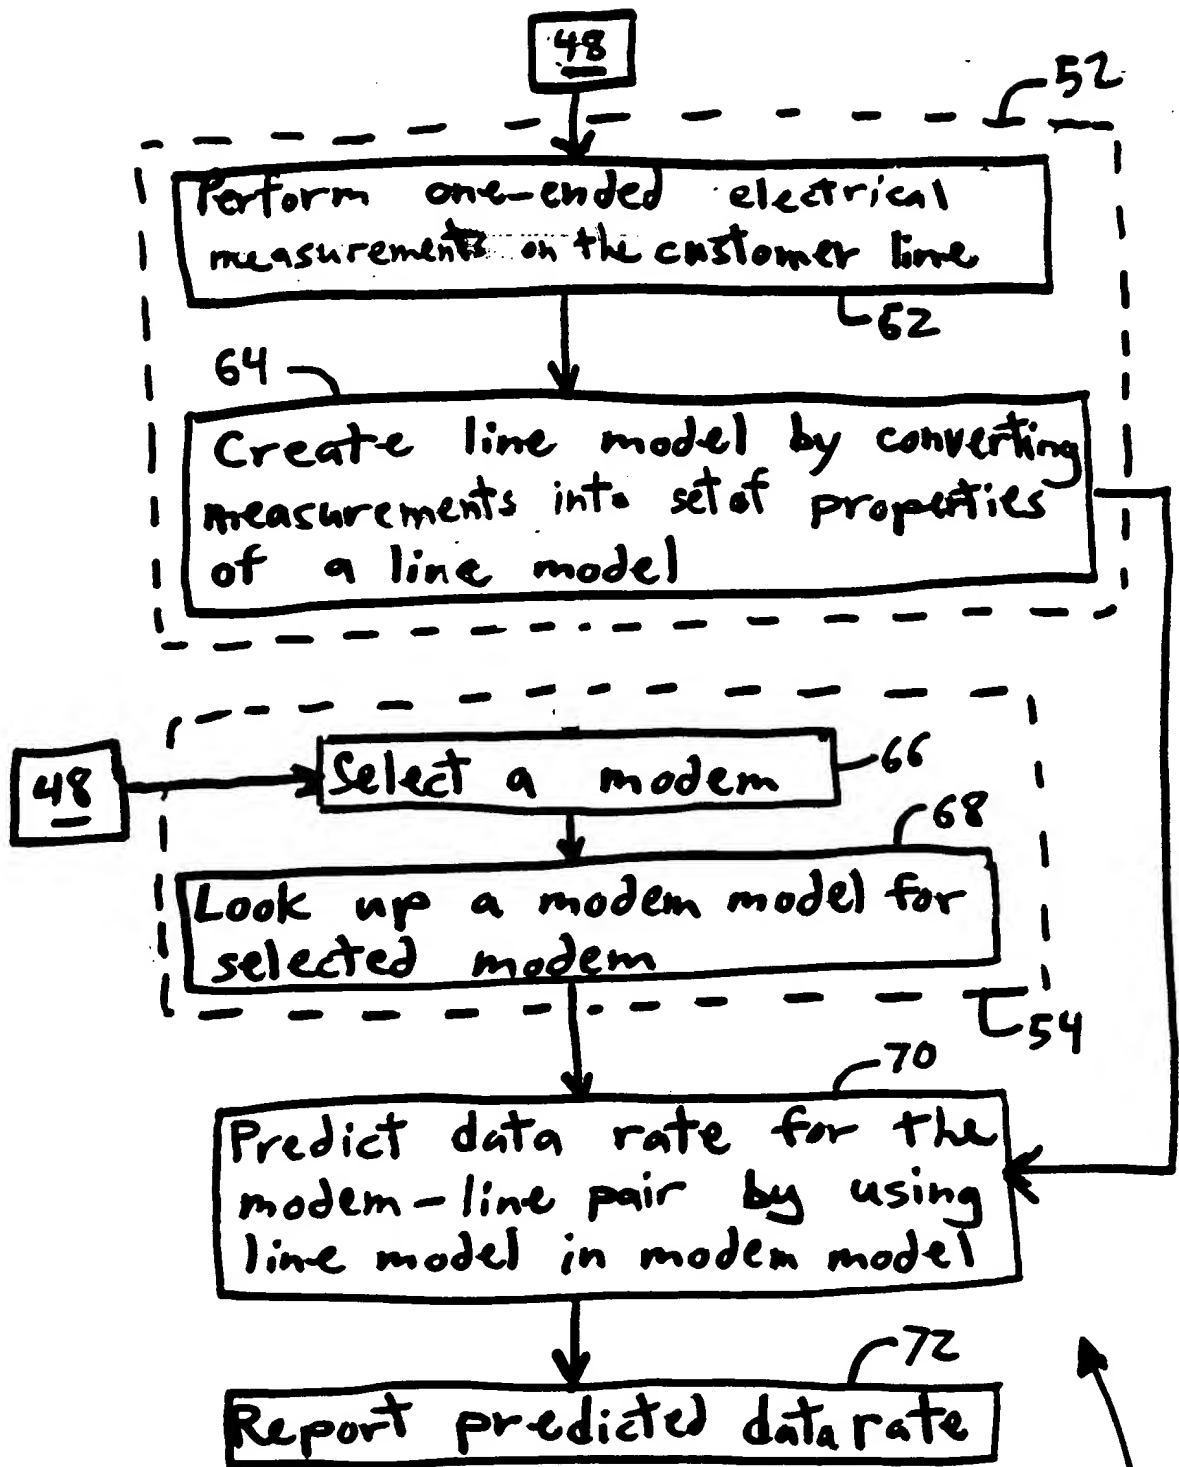 48
52
Perform one-ended electrical
measurements on the customer line
62
64
Create line model by converting
measurements into set of properties
of a line model
48
Select a modem
66
68
Look up a modem model for
selected modem
54
70
Predict data rate for the
modem-line pair by using
line model in modem model
72
Report predicted data rate